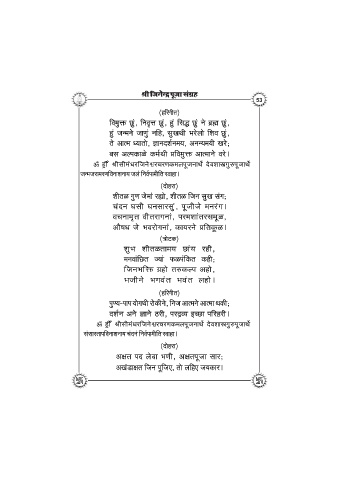 श्री जिनेन्द्र पूजा संग्रह
53
(हरिगीत)
विमुक्त छुं, निवृत्त छुं, हुं सिद्ध छुं ने ब्रह्म छुं,
हुं जन्मने जाणुं नहि, सुखथी भरेलो शिव छुं,
ते आत्म ध्यातो, ज्ञानदर्शनमय, अनन्यमयी खरे;
बस अल्पकाळे कर्मथी प्रविमुक्त आत्माने वरे।
ॐ ह्रीँ श्रीसीमंधरजिनेश्वरचरणकमलपूजनार्थे देवशास्त्रगुरुपूजार्थे
जन्मजरामरणविनाशनाय जलं निर्वपामीति स्वाहा।
(दोहरा)
शीतळ गुण जेमां रह्यो, शीतळ जिन सुख संग;
चंदन घसी घनसारसुं, पूजीजे मनरंग।
वचनामृत वीतरागनां, परमशांतरसमूळ,
औषध जे भवरोगनां, कायरने प्रतिकूळ।
(त्रोटक)
शुभ शीतळतामय छांय रही,
मनवांछित ज्यां फळपंकित कही;
जिनभक्ति ग्रहो तरुकल्प अहो,
भजीने भगवंत भवंत लहो।
(हरिगीत)
पुण्य-पाप योगथी रोकीने, निज आत्मने आत्मा थकी;
दर्शन अने ज्ञाने ठरी, परद्रव्य इच्छा परिहरी।
ॐ ह्रीँ श्रीसीमंधरजिनेश्वरचरणकमलपूजनार्थे देवशास्त्रगुरुपूजार्थे
संसारतापविनाशनाय चंदनं निर्वपामीति स्वाहा।
(दोहरा)
अक्षत पद लेवा भणी, अक्षतपूजा सार;
अखंडाक्षत जिन पूजिए, तो लहिए जयकार।